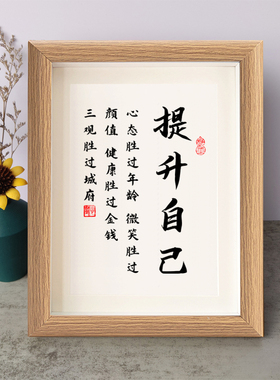 提升自己
心态胜过年龄 微笑胜过
颜值 健康胜过金钱
三观胜过城府